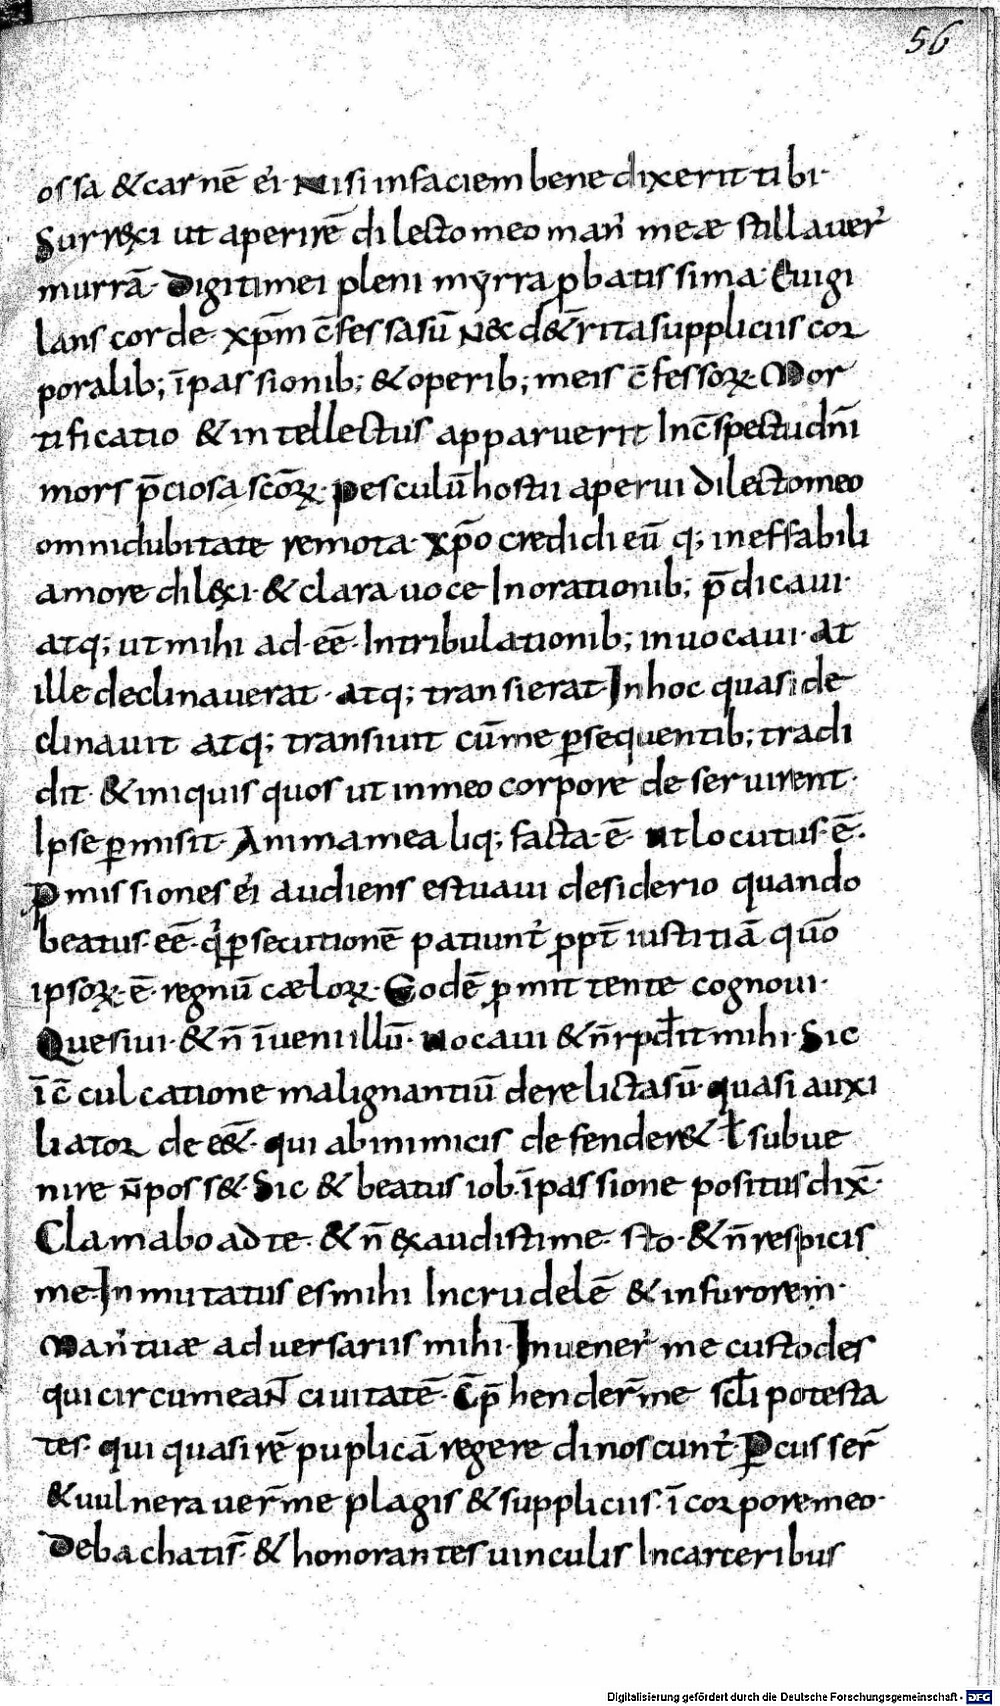 56
ossa & carnē ei᾽· Nisi infaciem benedixerit tibi·
Surrexi ut aperirē dilecto meo man᾽ meæ stillauer᾽
murrā· Digiti mei pleni myrra ꝓbatissima· Euigi
lans corde· xp̄m c̄fessasū Nec d&̄rrita suppliciis cor
poralib; īpassionib; & operib; meis c̄fessoꝝ· Mor
tificatio & intellectus apparuerit Inc̄spectu dn̄i
mors p̄ciosa sc̄oꝝ· pesculū hostii aperui dilecto meo
omni dubitate remota· xp̄o credidi eū q; ineffabili
amore dilexi· & clara uoce In orationib; p̄dicaui·
atq; ut mihi ad·eē· In tribulationib; inuocaui· at
ille declinauerat· atq; transierat· In hoc quasi de
clinauit atq; transiuit cū me ꝑsequentib; tradi
dit· & iniquis quos ut in meo corpore deseruirent·
Ipse ꝑmisit· Anima mea liq; facta·ē· ut locutus·ē·
Pmissiones ei᾽ audiens estuaui desiderio quando
beatus·eē· q᾽ ꝑsecutionē patiunt᾽ ꝓpt̄ iustitiā quō
ipsoꝝ·ē· regnū cæloꝝ· Eodē ꝑmittente cognoui·
Quesiui· & n̄ īueni illū· uocaui & n̄ rpđit mihi· Sic
īc̄culcatione malignantiū derelicta sū· quasi auxi
liator deeē&· qui abinimicis defender& ł subue
nire n̄ poss&· Sic & beatus iob· īpassione positus dix̄·
Clamabo ad te· & n̄ exaudisti me· sto· & n̄ respicis
me· Inmutatus es mihi In crudelē & in furorem·
Man᾽ tuæ aduersariis mihi· Inuener᾽ me custodes
qui circumeant ciuitatē· C̄p̄hender̄ me scłi potesta
tes· qui quasi rē puplicā regere dinoscunt᾽· Ꝑcusser̄
& uulnerauer̄ me plagis & suppliciis· ī corpore meo·
Debachatis̄· & honorantes uinculis In carceribus
Digitalisierung gefördert durch die Deutsche Forschungsgemeinschaft - DFG